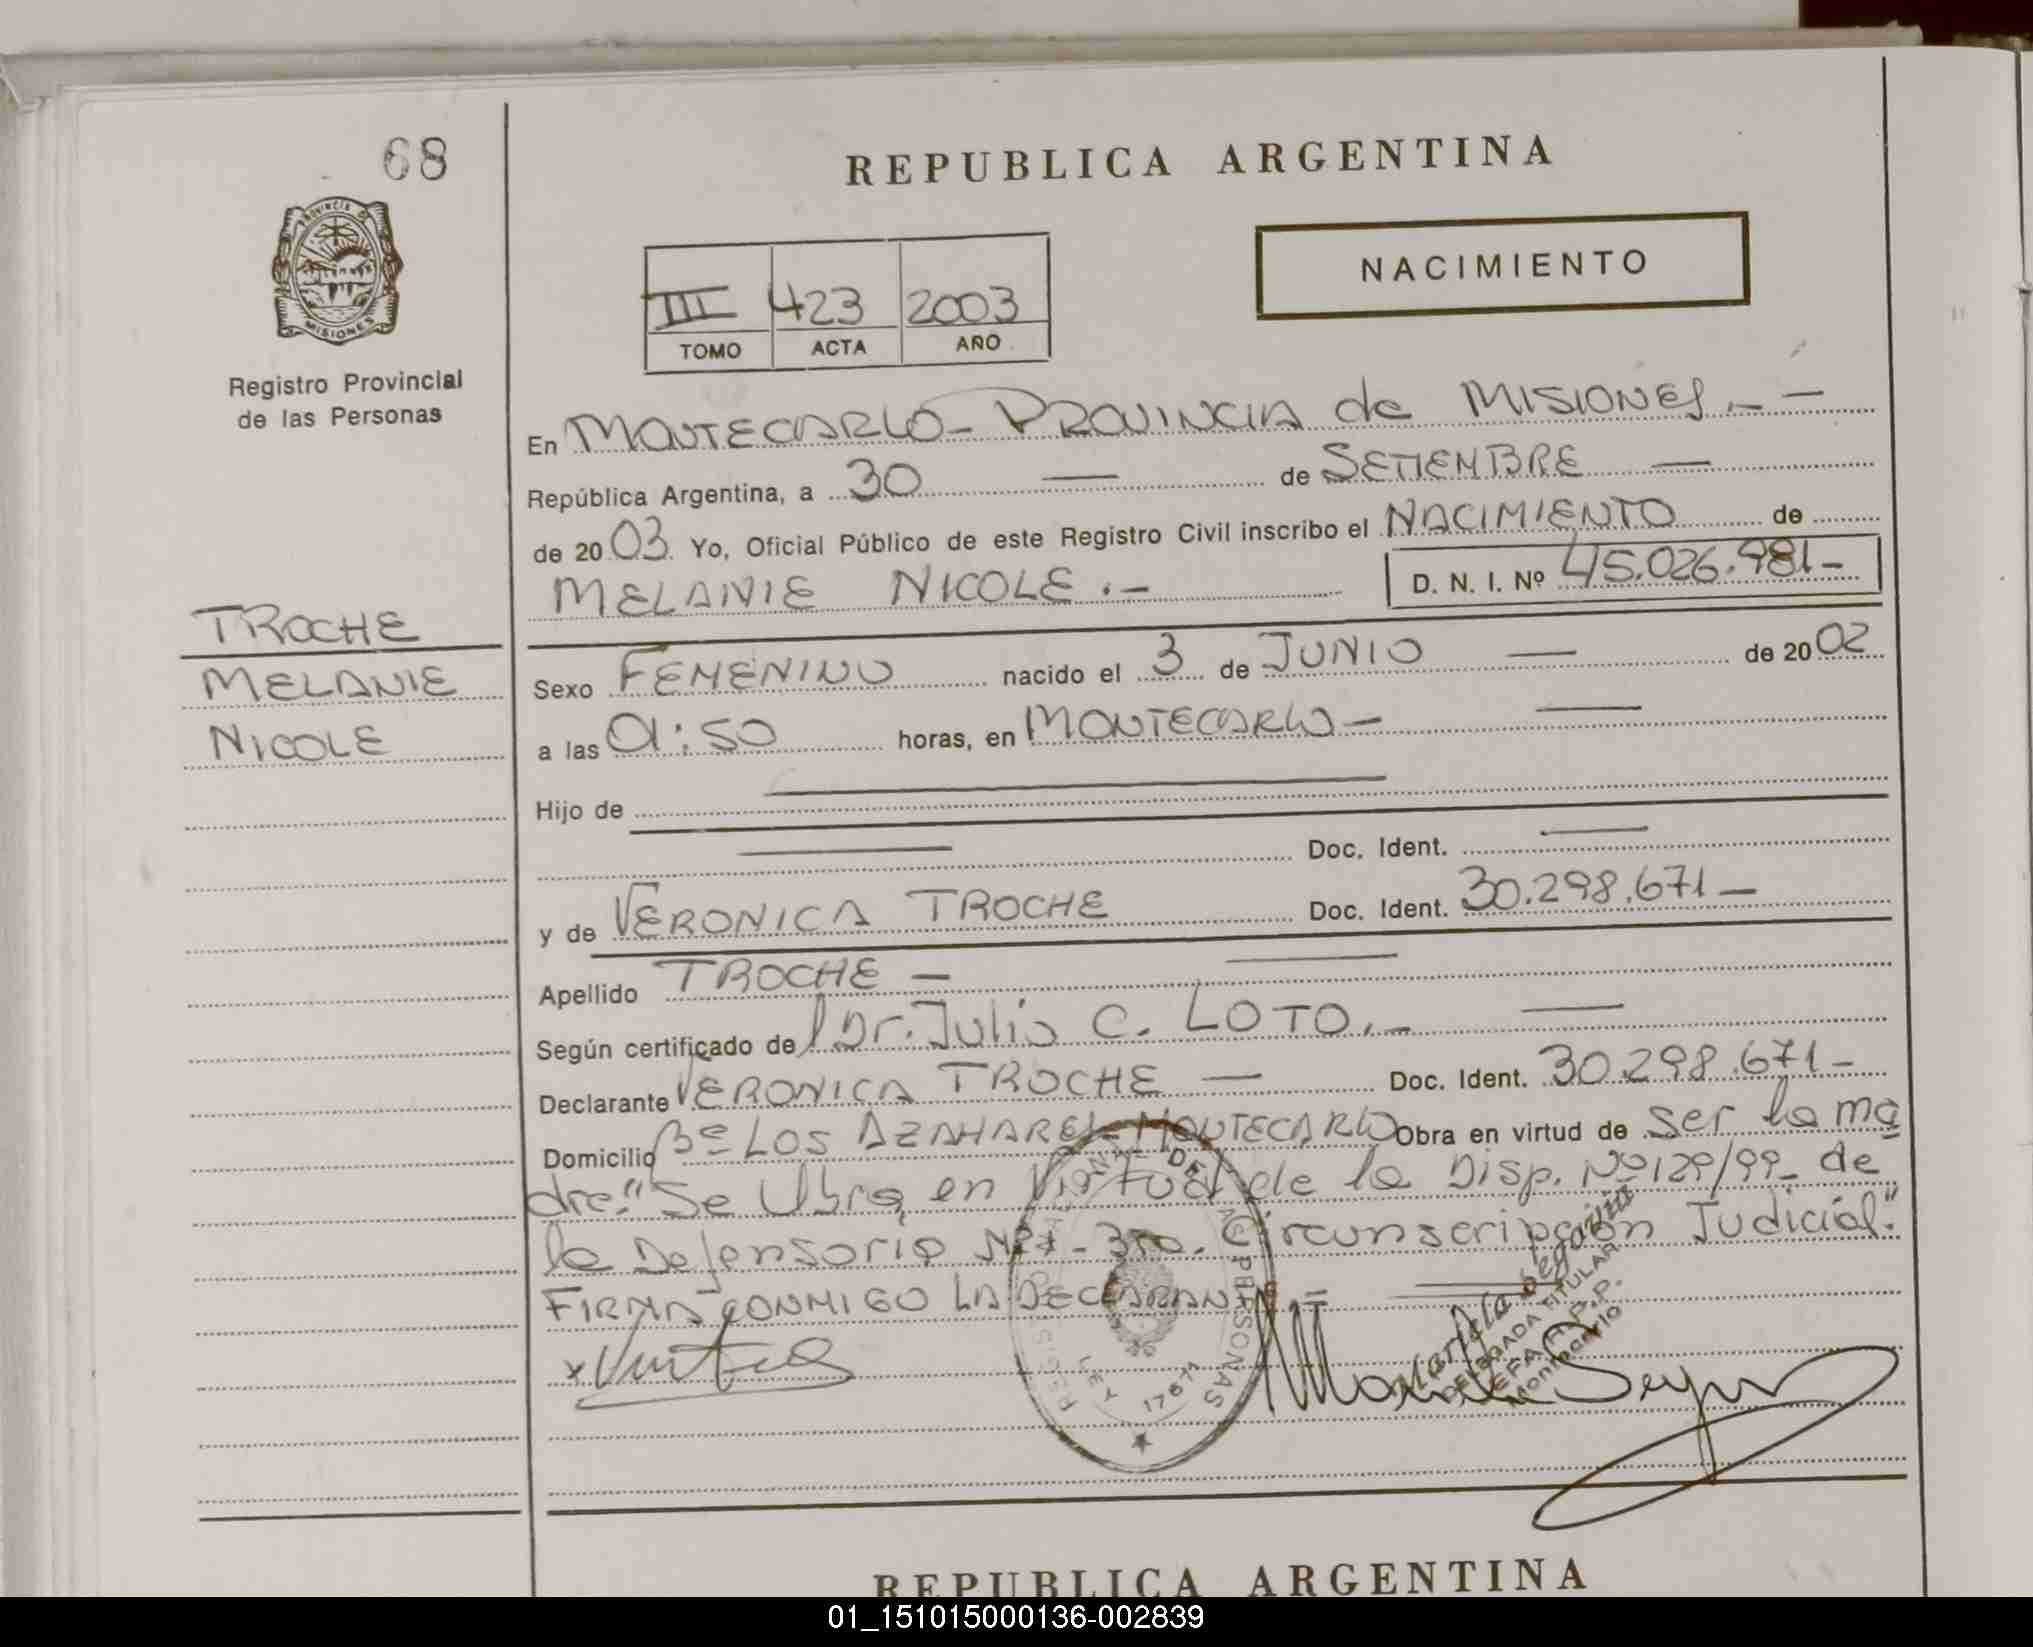 68
REPUBLICA ARGENTINA
NACIMIENTO
III 423 2003
TOMO ACTA AÑO
PROVINCIA DE
MISIONES
Registro Provincial
de las Personas
En MONTECARLO - PROVINCIA de MISIONES.- -
República Argentina, a 30 — de SETIEMBRE —
de 20 03. Yo, Oficial Público de este Registro Civil inscribo el NACIMIENTO de
MELANIE NICOLE.- D. N. I. Nº 45.026.981-
TROCHE
MELANIE
NICOLE
Sexo FEMENINO nacido el 3 de JUNIO — de 20 02
a las 01:50 horas, en MONTECARLO - —
Hijo de —
— Doc. Ident. —
y de VERONICA TROCHE Doc. Ident. 30.298.671-
Apellido TROCHE - —
Según certificado de Dr. Julio C. LOTO.- —
Declarante VERONICA TROCHE — Doc. Ident. 30.298.671-
Domicilio Bº LOS AZAHARES - MONTECARLO Obra en virtud de ser la ma
dre." Se Obra en Virtud de la Disp. Nº 129/99- de
la Defensoria Nº1- 3ra. Circunscripción Judicial."
FIRMA CONMIGO LA DECLARANTE -
DE LAS PERSONAS
LEY 17671
DELEGADA TITULAR
Montecarlo
REPUBLICA ARGENTINA
01_151015000136-002839